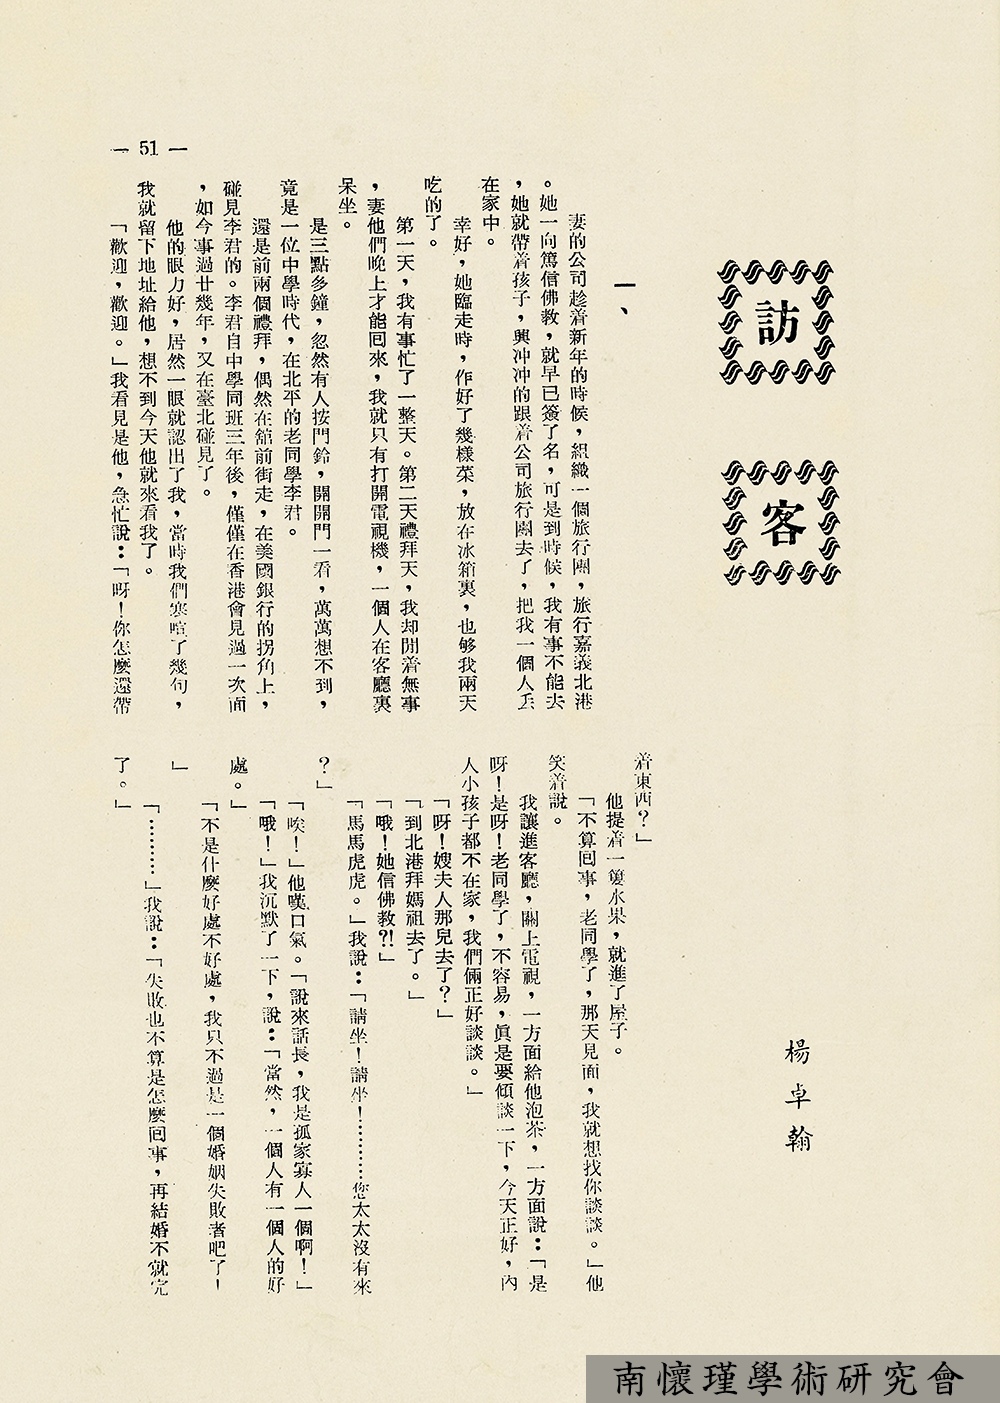 訪客
楊卓翰
一、
　妻的公司趁着新年的時候，組織一個旅行團，旅行嘉義北港
。她一向篤信佛教，就早已簽了名，可是到時候，我有事不能去
，她就帶着孩子，興冲冲的跟着公司旅行團去了，把我一個人丢
在家中。
　幸好，她臨走時，作好了幾樣菜，放在冰箱裏，也够我兩天
吃的了。
　第一天，我有事忙了一整天。第二天禮拜天，我却閒着無事
，妻他們晚上才能回來，我就只有打開電視機，一個人在客廳裏
呆坐。
　是三點多鐘，忽然有人按門鈴，開開門一看，萬萬想不到，
竟是一位中學時代，在北平的老同學李君。
　還是前兩個禮拜，偶然在舘前街走，在美國銀行的拐角上，
碰見李君的。李君自中學同班三年後，僅僅在香港會見過一次面
，如今事過廿幾年，又在臺北碰見了。
　他的眼力好，居然一眼就認出了我，當時我們寒喧了幾句，
我就留下地址給他，想不到今天他就來看我了。
　「歡迎，歡迎。」我看見是他，急忙說：「呀！你怎麼還帶
着東西？」
　他提着一簍水果，就進了屋子。
　「不算回事，老同學了，那天見面，我就想找你談談。」他
笑着說。
　我讓進客廳，關上電視，一方面給他泡茶，一方面說：「是
呀！是呀！老同學了，不容易，眞是要傾談一下，今天正好，內
人小孩子都不在家，我們倆正好談談。」
　「呀！嫂夫人那兒去了？」
　「到北港拜媽祖去了。」
　「哦！她信佛教?!」
　「馬馬虎虎。」我說：「請坐！請坐！………您太太沒有來
？」
　「唉！」他嘆口氣。「說來話長，我是孤家寡人一個啊！」
　「哦！」我沉默了一下，說：「當然，一個人有一個人的好
處。」
　「不是什麼好處不好處，我只不過是一個婚姻失敗者吧了！
」
　「………」我說：「失敗也不算是怎麼回事，再結婚不就完
了。」
— 51 —
南懷瑾學術研究會